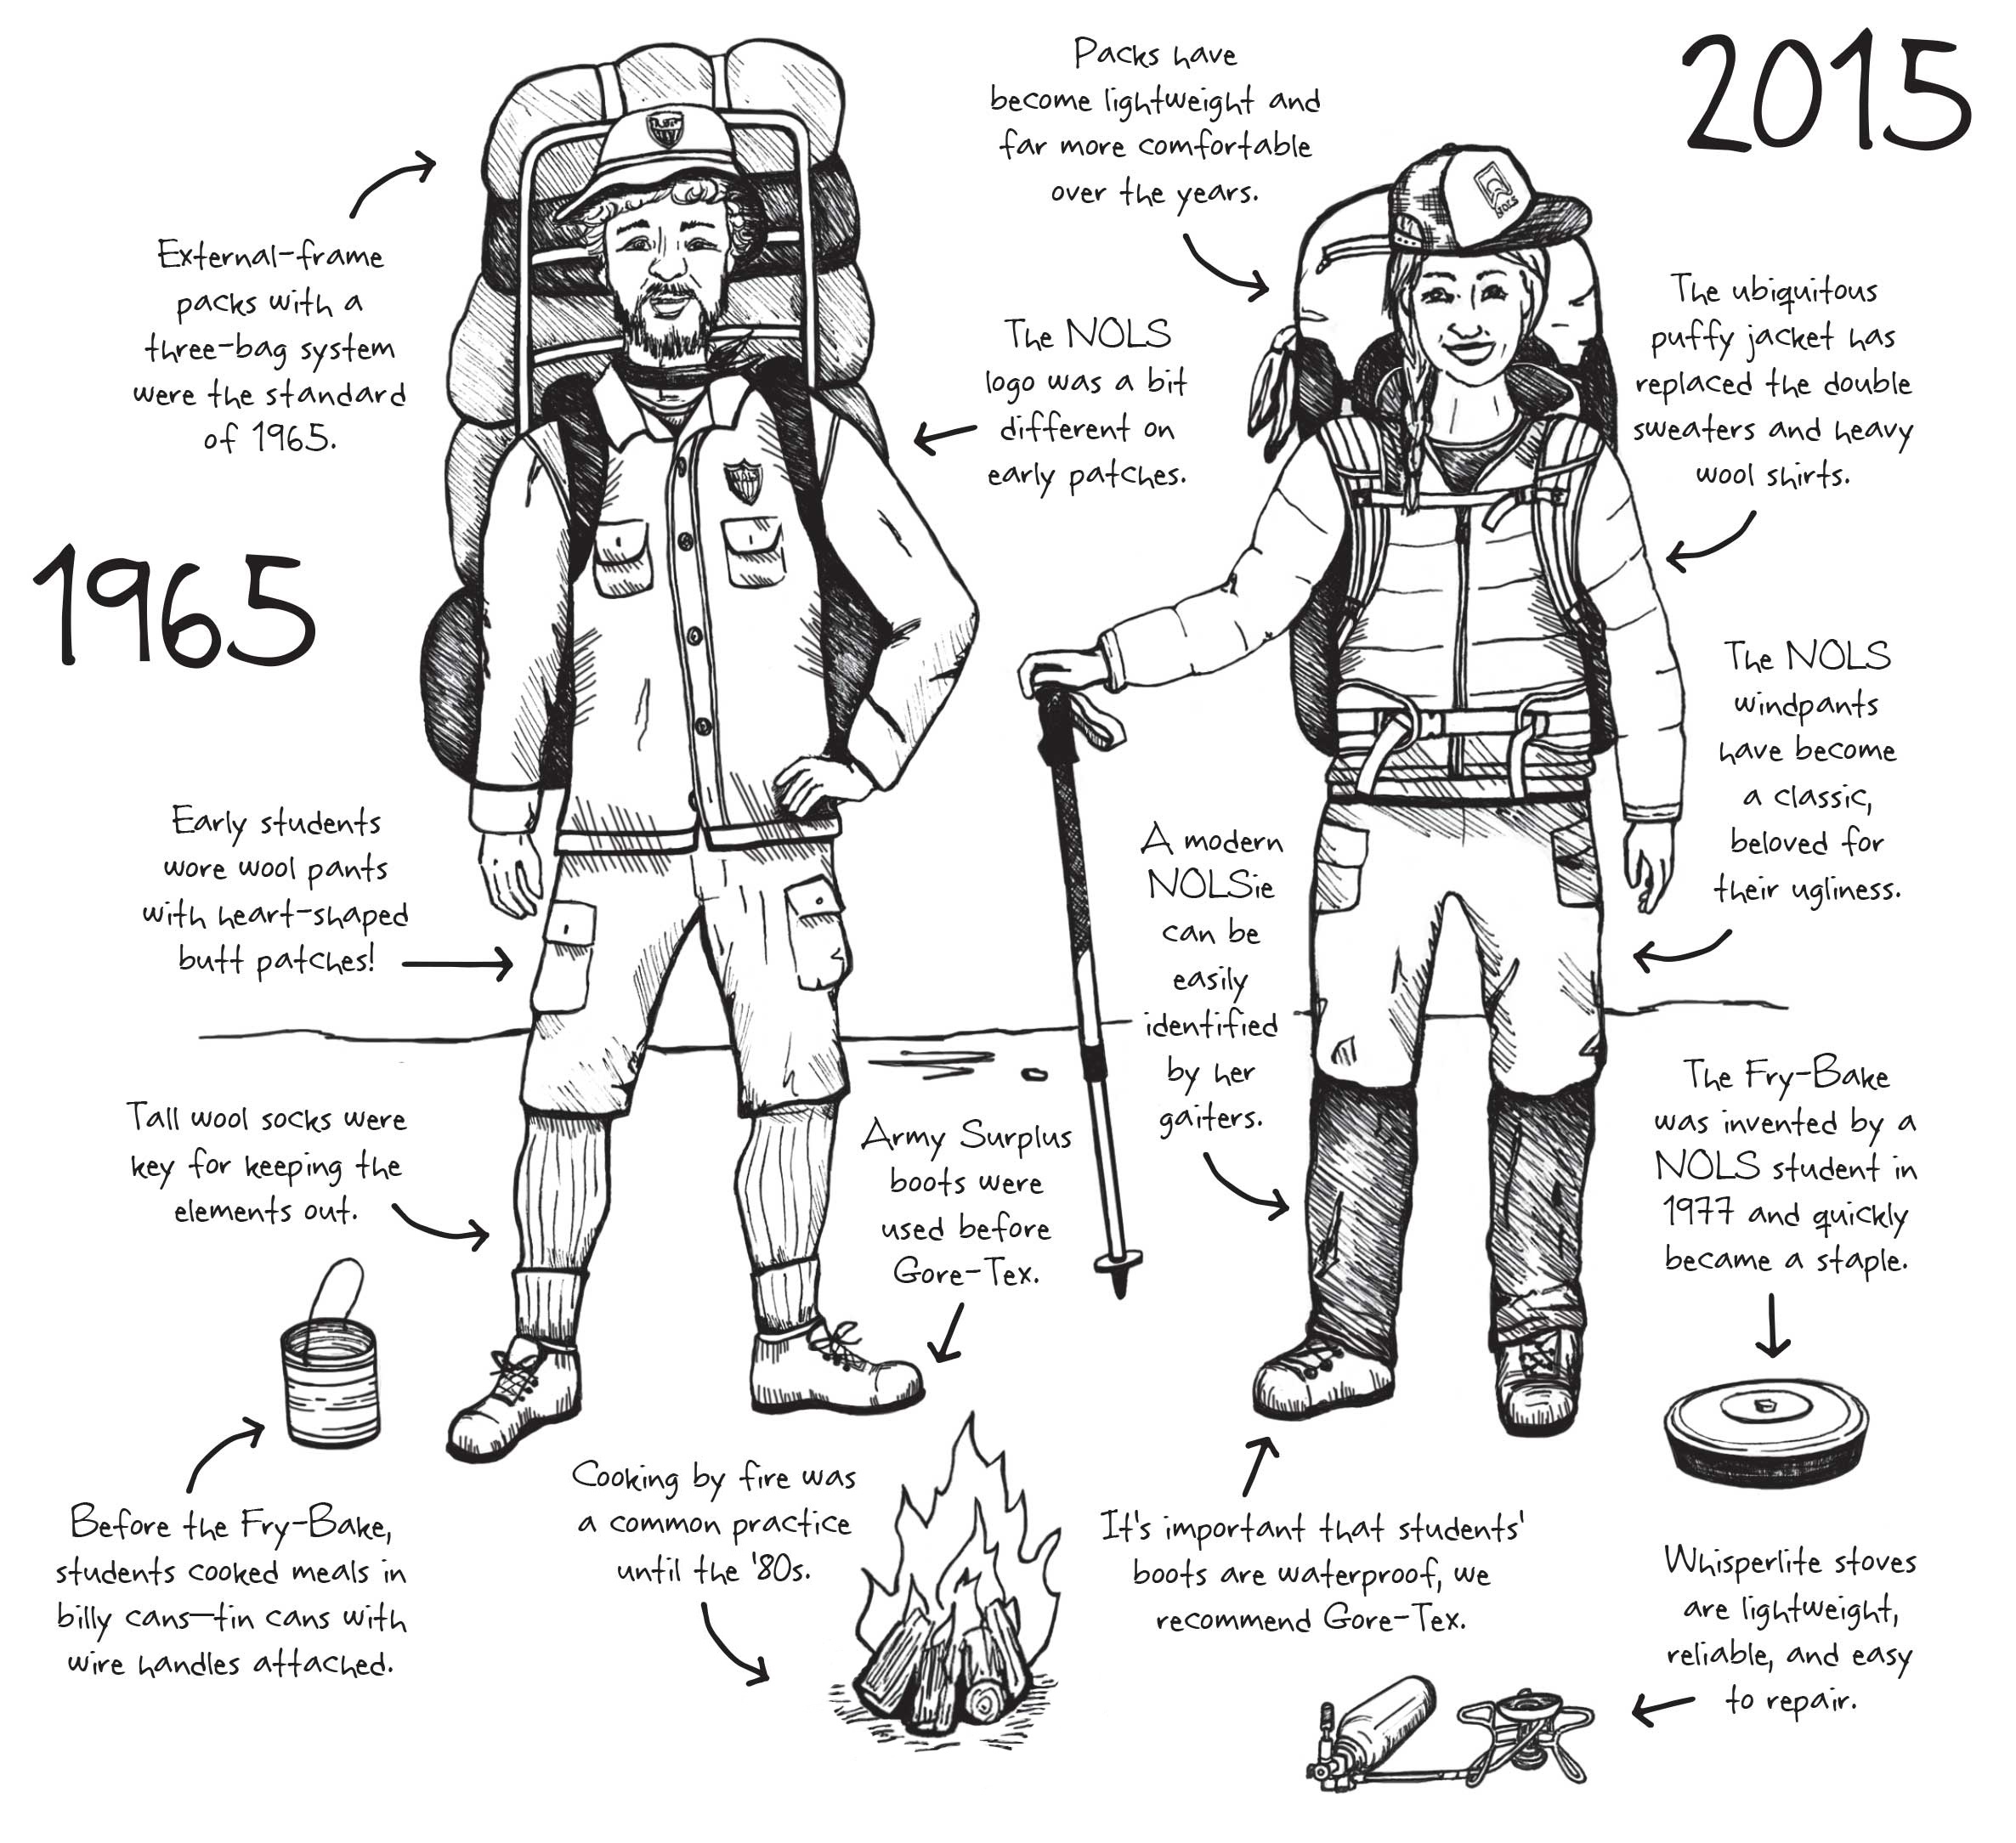 2015
Packs have
become lightweight and
far more comfortable
over the years.
External-frame
packs with a
three-bag system
were the standard
of 1965.
The NOLS
logo was a bit
different on
early patches.
NOLS
The ubiquitous
puffy jacket has
replaced the double
sweaters and heavy
wool shirts.
1965
The NOLS
windpants
have become
a classic,
beloved for
their ugliness.
Early students
wore wool pants
with heart-shaped
butt patches!
A modern
NOLSie
can be
easily
identified
by her
gaiters.
Tall wool socks were
key for keeping the
elements out.
Army Surplus
boots were
used before
Gore-Tex.
The Fry-Bake
was invented by a
NOLS student in
1977 and quickly
became a staple.
Before the Fry-Bake,
students cooked meals in
billy cans—tin cans with
wire handles attached.
Cooking by fire was
a common practice
until the '80s.
It's important that students'
boots are waterproof, we
recommend Gore-Tex.
Whisperlite stoves
are lightweight,
reliable, and easy
to repair.